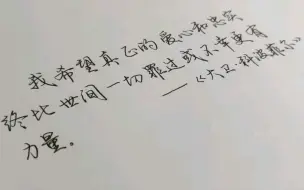 我希望真正的爱心和忠实
终比世间一切罪过或不幸更有
力量。
——《大卫·科波菲尔》